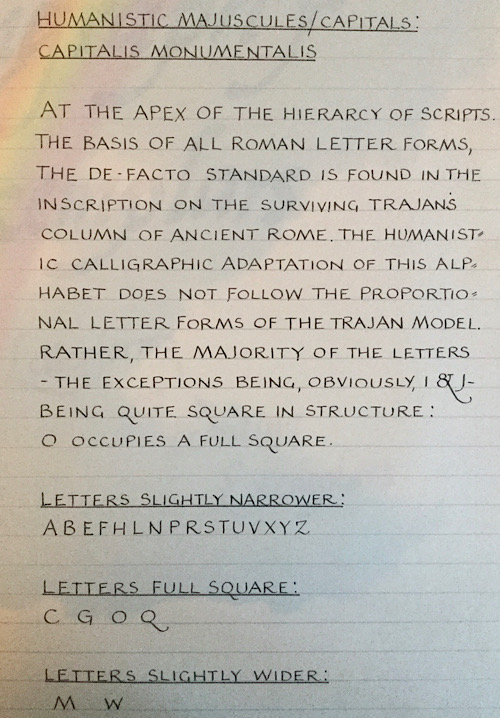 HUMANISTIC MAJUSCULES/CAPITALS:
CAPITALIS MONUMENTALIS
AT THE APEX OF THE HIERARCY OF SCRIPTS.
THE BASIS OF ALL ROMAN LETTER FORMS,
THE DE-FACTO STANDARD IS FOUND IN THE
INSCRIPTION ON THE SURVIVING TRAJAN'S
COLUMN OF ANCIENT ROME. THE HUMANIST=
IC CALLIGRAPHIC ADAPTATION OF THIS ALP=
HABET DOES NOT FOLLOW THE PROPORTIO=
NAL LETTER FORMS OF THE TRAJAN MODEL.
RATHER, THE MAJORITY OF THE LETTERS
- THE EXCEPTIONS BEING, OBVIOUSLY, I & J-
BEING QUITE SQUARE IN STRUCTURE:
O OCCUPIES A FULL SQUARE.
LETTERS SLIGHTLY NARROWER:
A B E F H L N P R S T U V X Y Z
LETTERS FULL SQUARE:
C G O Q
LETTERS SLIGHTLY WIDER:
M W